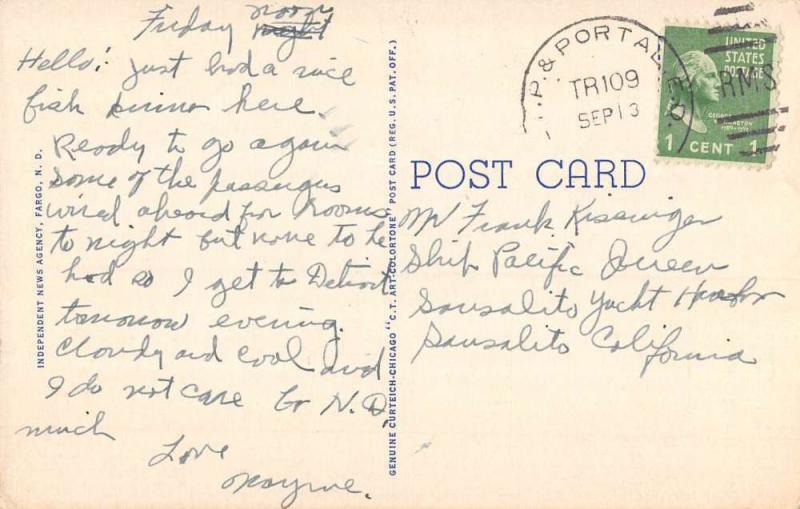 Friday noon
night
Hello! Just had a nice
fish dinner here.
Ready to go again
Some of the passengers
wired ahead for rooms
to night but none to be
had so I get to Detroit
tomorrow evening.
Cloudy and cool and
I do not care for N.D.
much
Love
INDEPENDENT NEWS AGENCY, FARGO, N. D.
GENUINE CURTEICH-CHICAGO "C.T. ART-COLORTONE" POST CARD (REG. U.S. PAT. OFF.)
P. & PORTAL
TR109
SEP 13
RMS
UNITED
STATES
POSTAGE
1 CENT 1
POST CARD
Mr Frank Kissinger
Ship Pacific Queen
Sausalito Yacht Harbor
Sausalito California